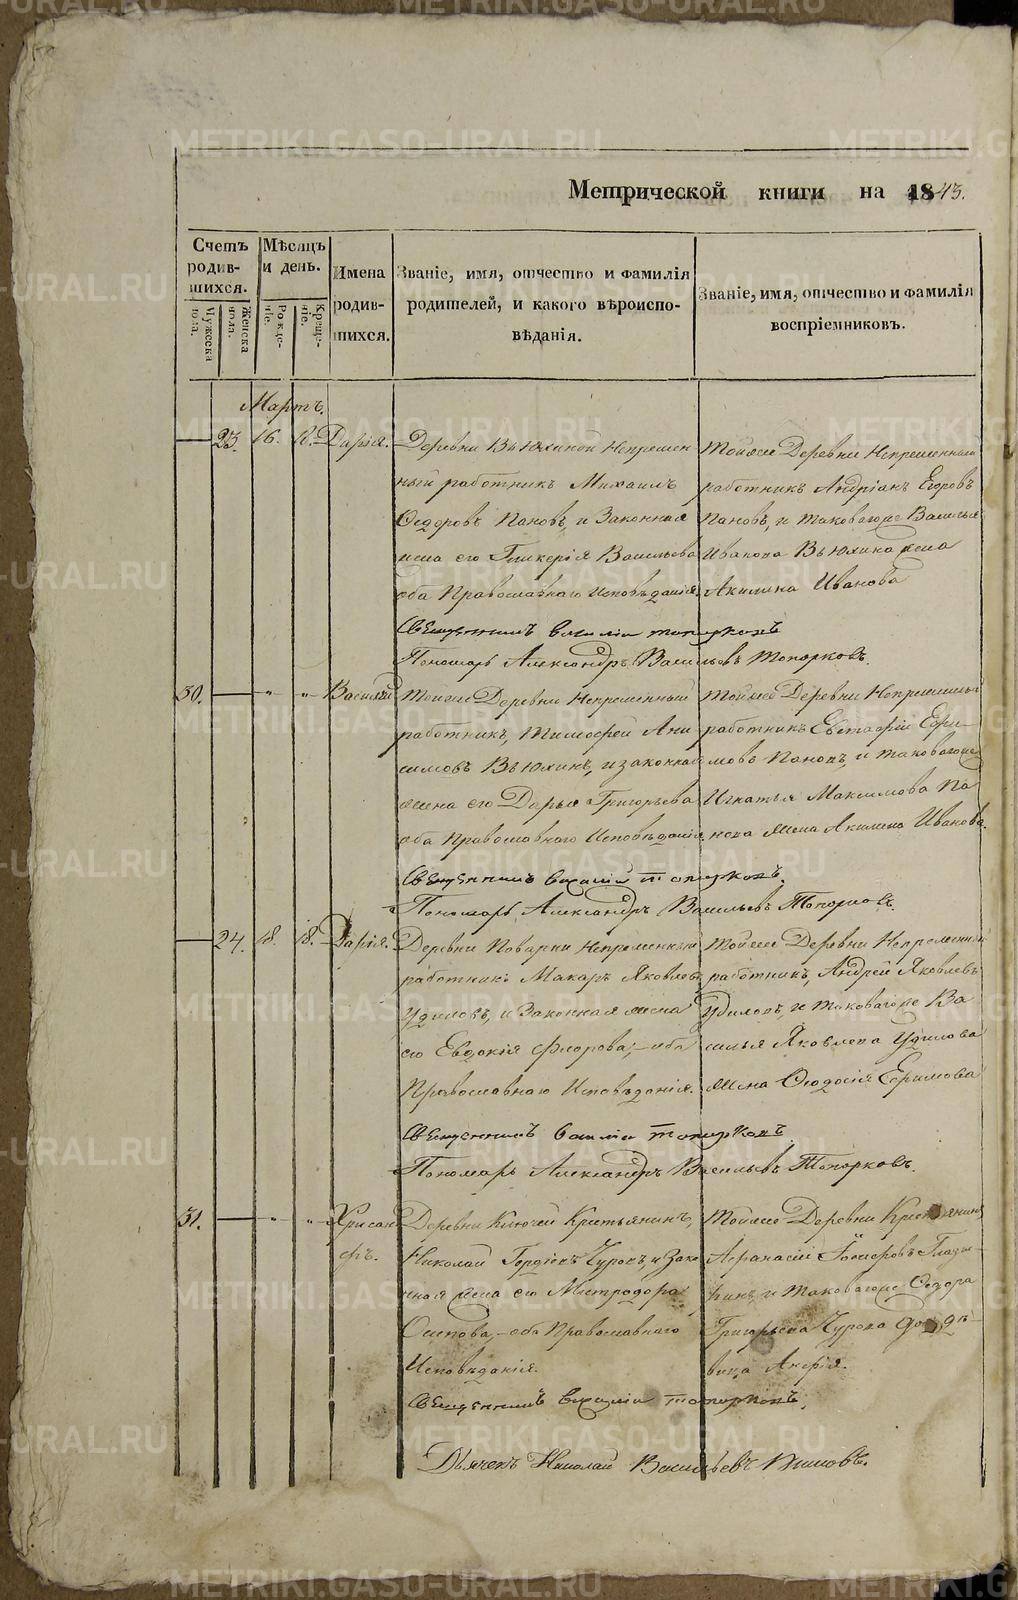 Метрической книги на 1843.
Счетъ родив-шихся.
Мѣсяцъ и день.
Имена родив-шихся.
Званіе, имя, отчество и фамилія родителей, и какого вѣроиспо-вѣданія.
Званіе, имя, отчество и фамилія воспріемниковъ.
Мужеска пола.
Женска пола.
Рожде-ніе.
Креще-ніе.
Мартъ.
23. 16. Дарія.
Деревни Вьюхиной Непремен
ный работникъ Михаилъ
Ѳедоровъ Пановъ, и Законная
жена его Гликерія Васильева
оба Православнаго Исповѣданія.
Тойже Деревни Непременный
работникъ Андріанъ Егоровъ
Пановъ, и таковагоже Василья
Иванова Вьюхина жена
Акилина Иванова
Священникъ Василій Топорковъ
Пономарь Александръ Васильевъ Топорковъ.
30. — „ „ Василій
Тойже Деревни Непременный
работникъ, Тимофей Ани
симовъ Вьюхинъ, и законная
жена его Дарья Григорьева
оба Православнаго Исповѣданія.
Тойже Деревни Непременный
работникъ Евстафій Ефи-
мовъ Пановъ, и таковагоже
Игнатья Максимова Па
нова жена Акилина Иванова.
Священникъ Василій Топорковъ.
Пономарь Александръ Васильевъ Топорковъ.
24. 18. 18. Дарія.
Деревни Поварни Непременный
работникъ Макаръ Яковлевъ
Удиловъ, и Законная жена
его Евдокія Федорова, — оба
Православнаго Исповѣданія.
Тойже Деревни Непременный
работникъ, Андрей Яковлевъ
Удиловъ, и таковагоже Ва
силья Яковлева Удилова
жена Ѳеодосія Ефимова
Священникъ Василій Топорковъ.
Пономарь Александръ Васильевъ Топорковъ.
31. — „ „ Хрисан
фъ.
Деревни Ключей Крестьянинъ,
Николай Гордѣевъ Чуровъ, и Зако
нная жена его Митродора
Осипова, — оба Православнаго
Исповѣданія.
Тойже Деревни Крестьянинъ
Афанасій
и таковагоже Ѳедора
Григорьева Чурова
вица
Священникъ Василій Топорковъ.
Дьячекъ Николай Васильевъ